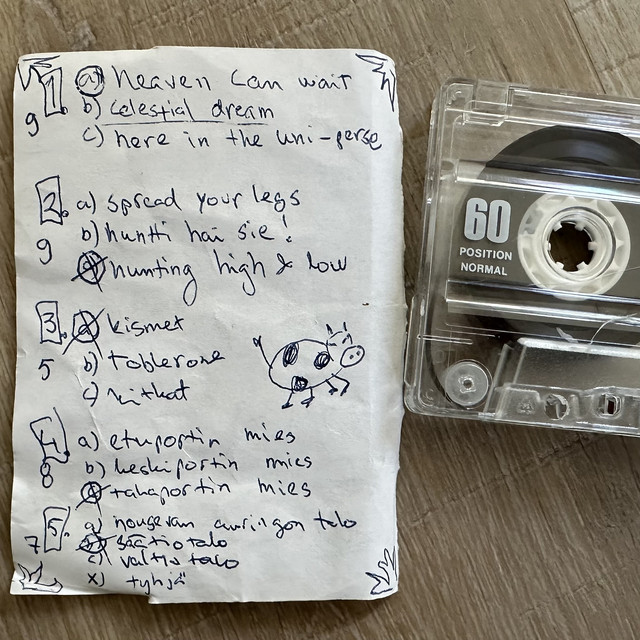 1. a) heaven can wait
9 b) celestial dream
c) here in the uni-perse
2. a) spread your legs
9 b) huntti hai sie!
c) hunting high & low
3. a) kismet
5 b) toblerone
c) kitkat
4. a) etuportin mies
8 b) keskiportin mies
c) takaportin mies
5. a) nousevan auringon talo
7 b) säätiötalo
c) valtiotalo
x) tyhjä
60
POSITION
NORMAL